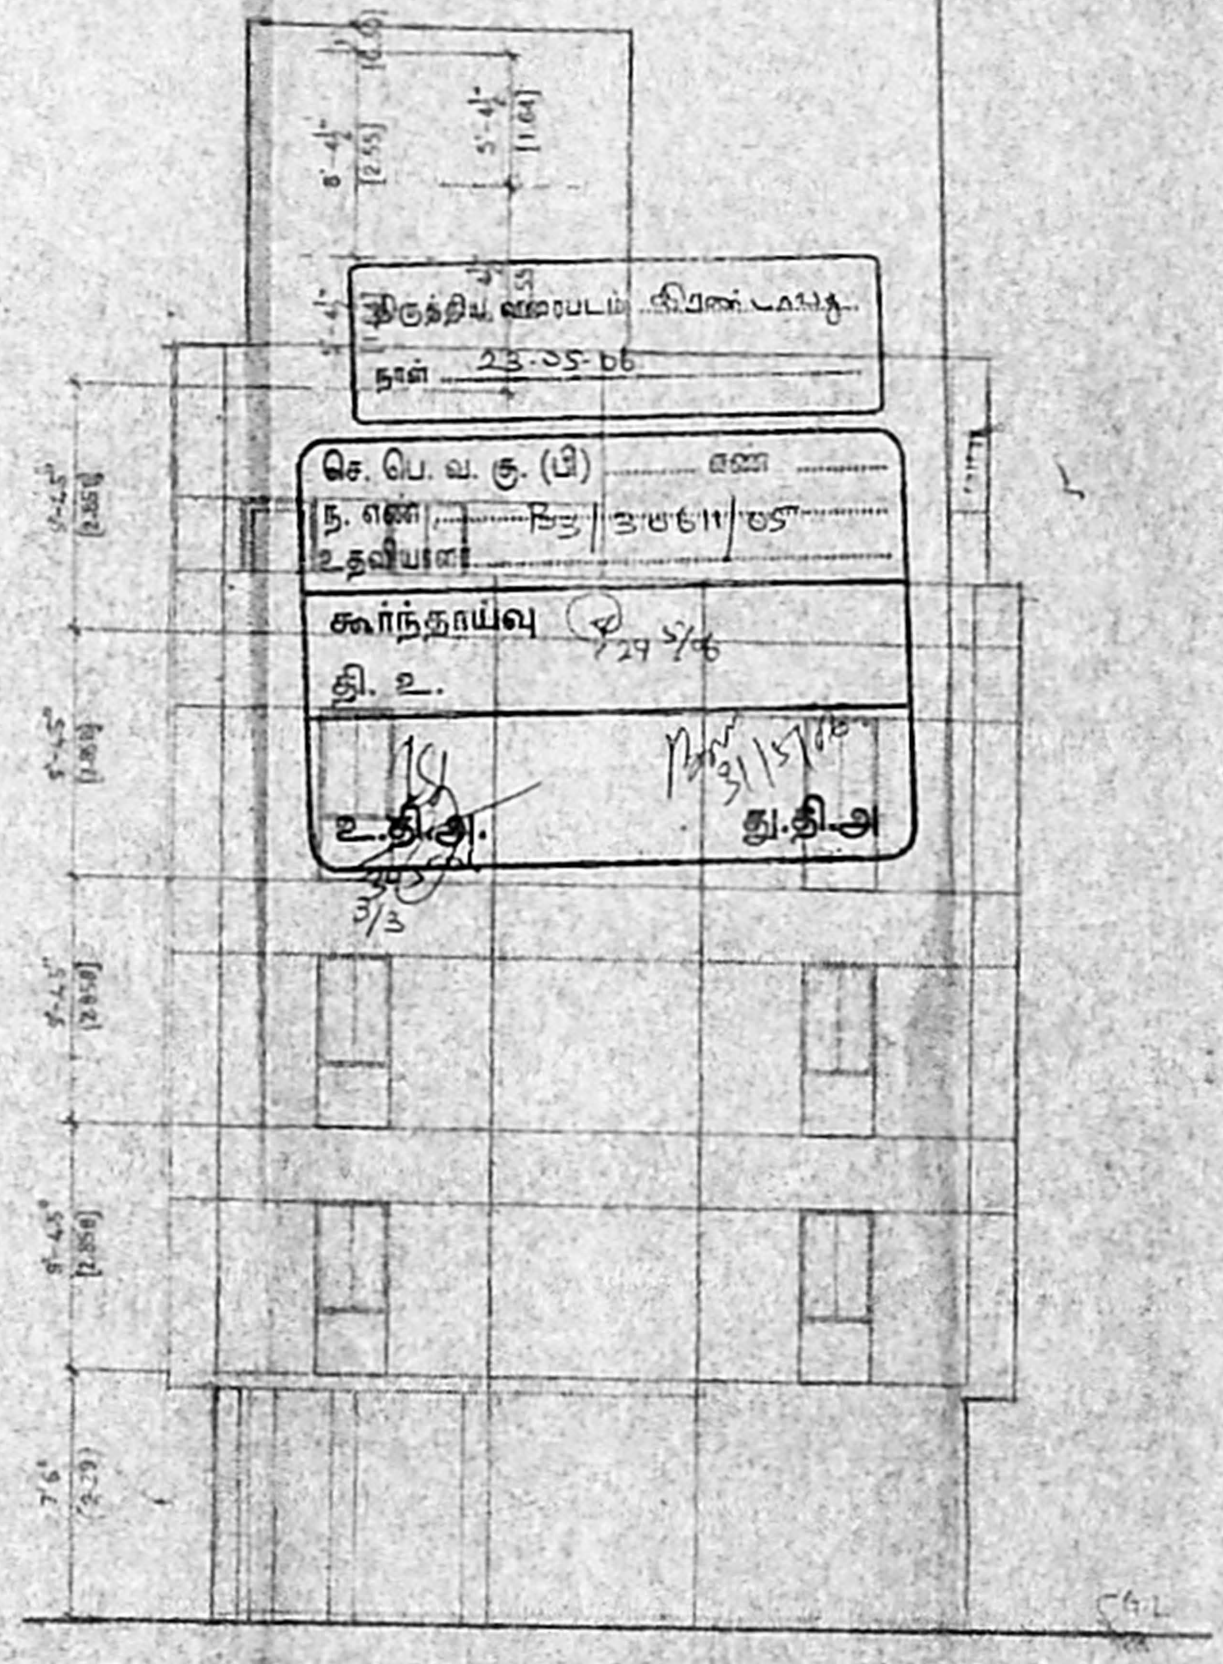 8'-4½"
[2.55]
5'-4½"
[1.64]
திருத்திய வரைபடம்
நாள் 23-05-06
செ. பெ. வ. கு. (பி) எண்
ந. எண் B3/30611/05
உதவியாளர்
கூர்ந்தாய்வு 29/5/06
தி. உ.
31/5/06
உ.தி.அ. து.தி.அ
3/3
9'-4.5"
[2.858]
9'-4.5"
[2.858]
9'-4.5"
[2.858]
9'-4.5"
[2.858]
7'6"
(2.29)
G.L